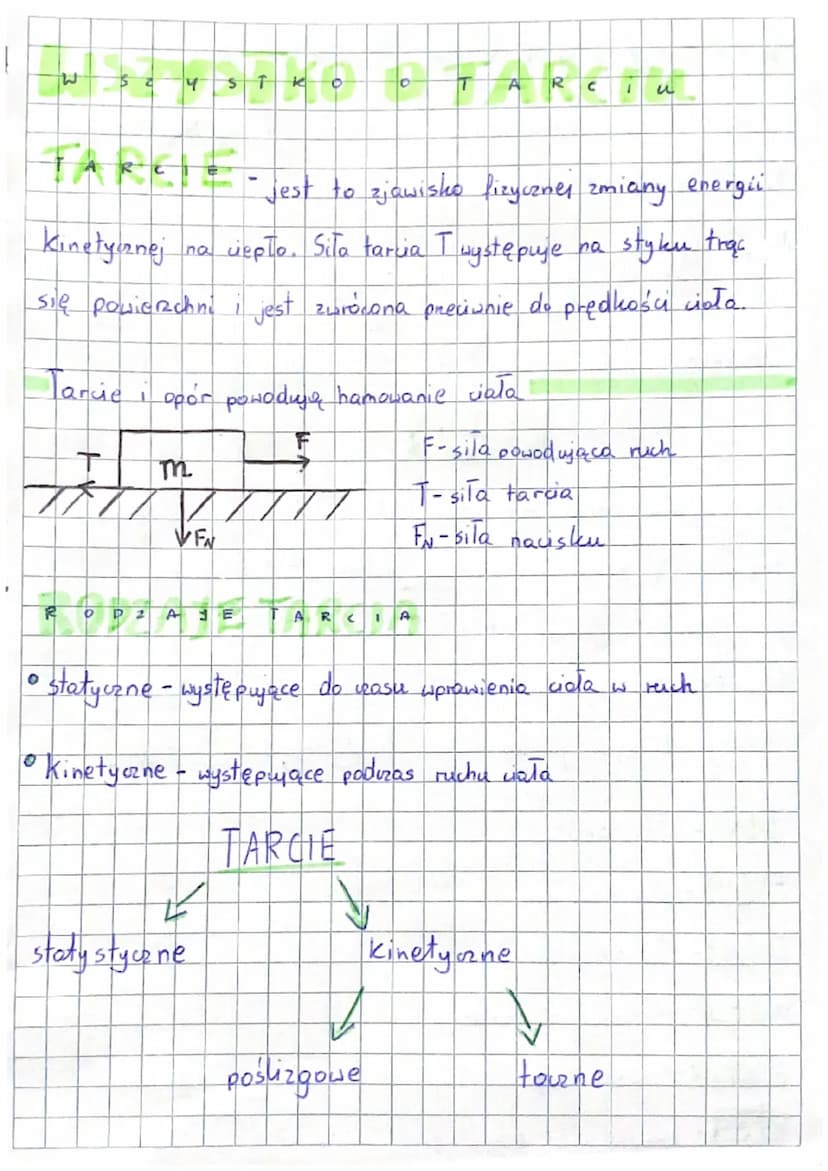 WSZYSTKO O TARCIU
TARCIE - jest to zjawisko fizycznej zmiany energii
kinetycznej na ciepło. Siła tarcia T występuje na styku trąc
się powierzchni i jest zwrócona przeciwnie do prędkości ciała.
Tarcie i opór powodują hamowanie ciała
F
F-siła powodująca ruch
T
m
T-siła tarcia
FN
FN-siła nacisku
RODZAJE TARCIA
• statyczne - występujące do czasu wprawienia ciała w ruch
• kinetyczne - występujące podczas ruchu ciała
TARCIE
statystyczne kinetyczne
poślizgowe toczne